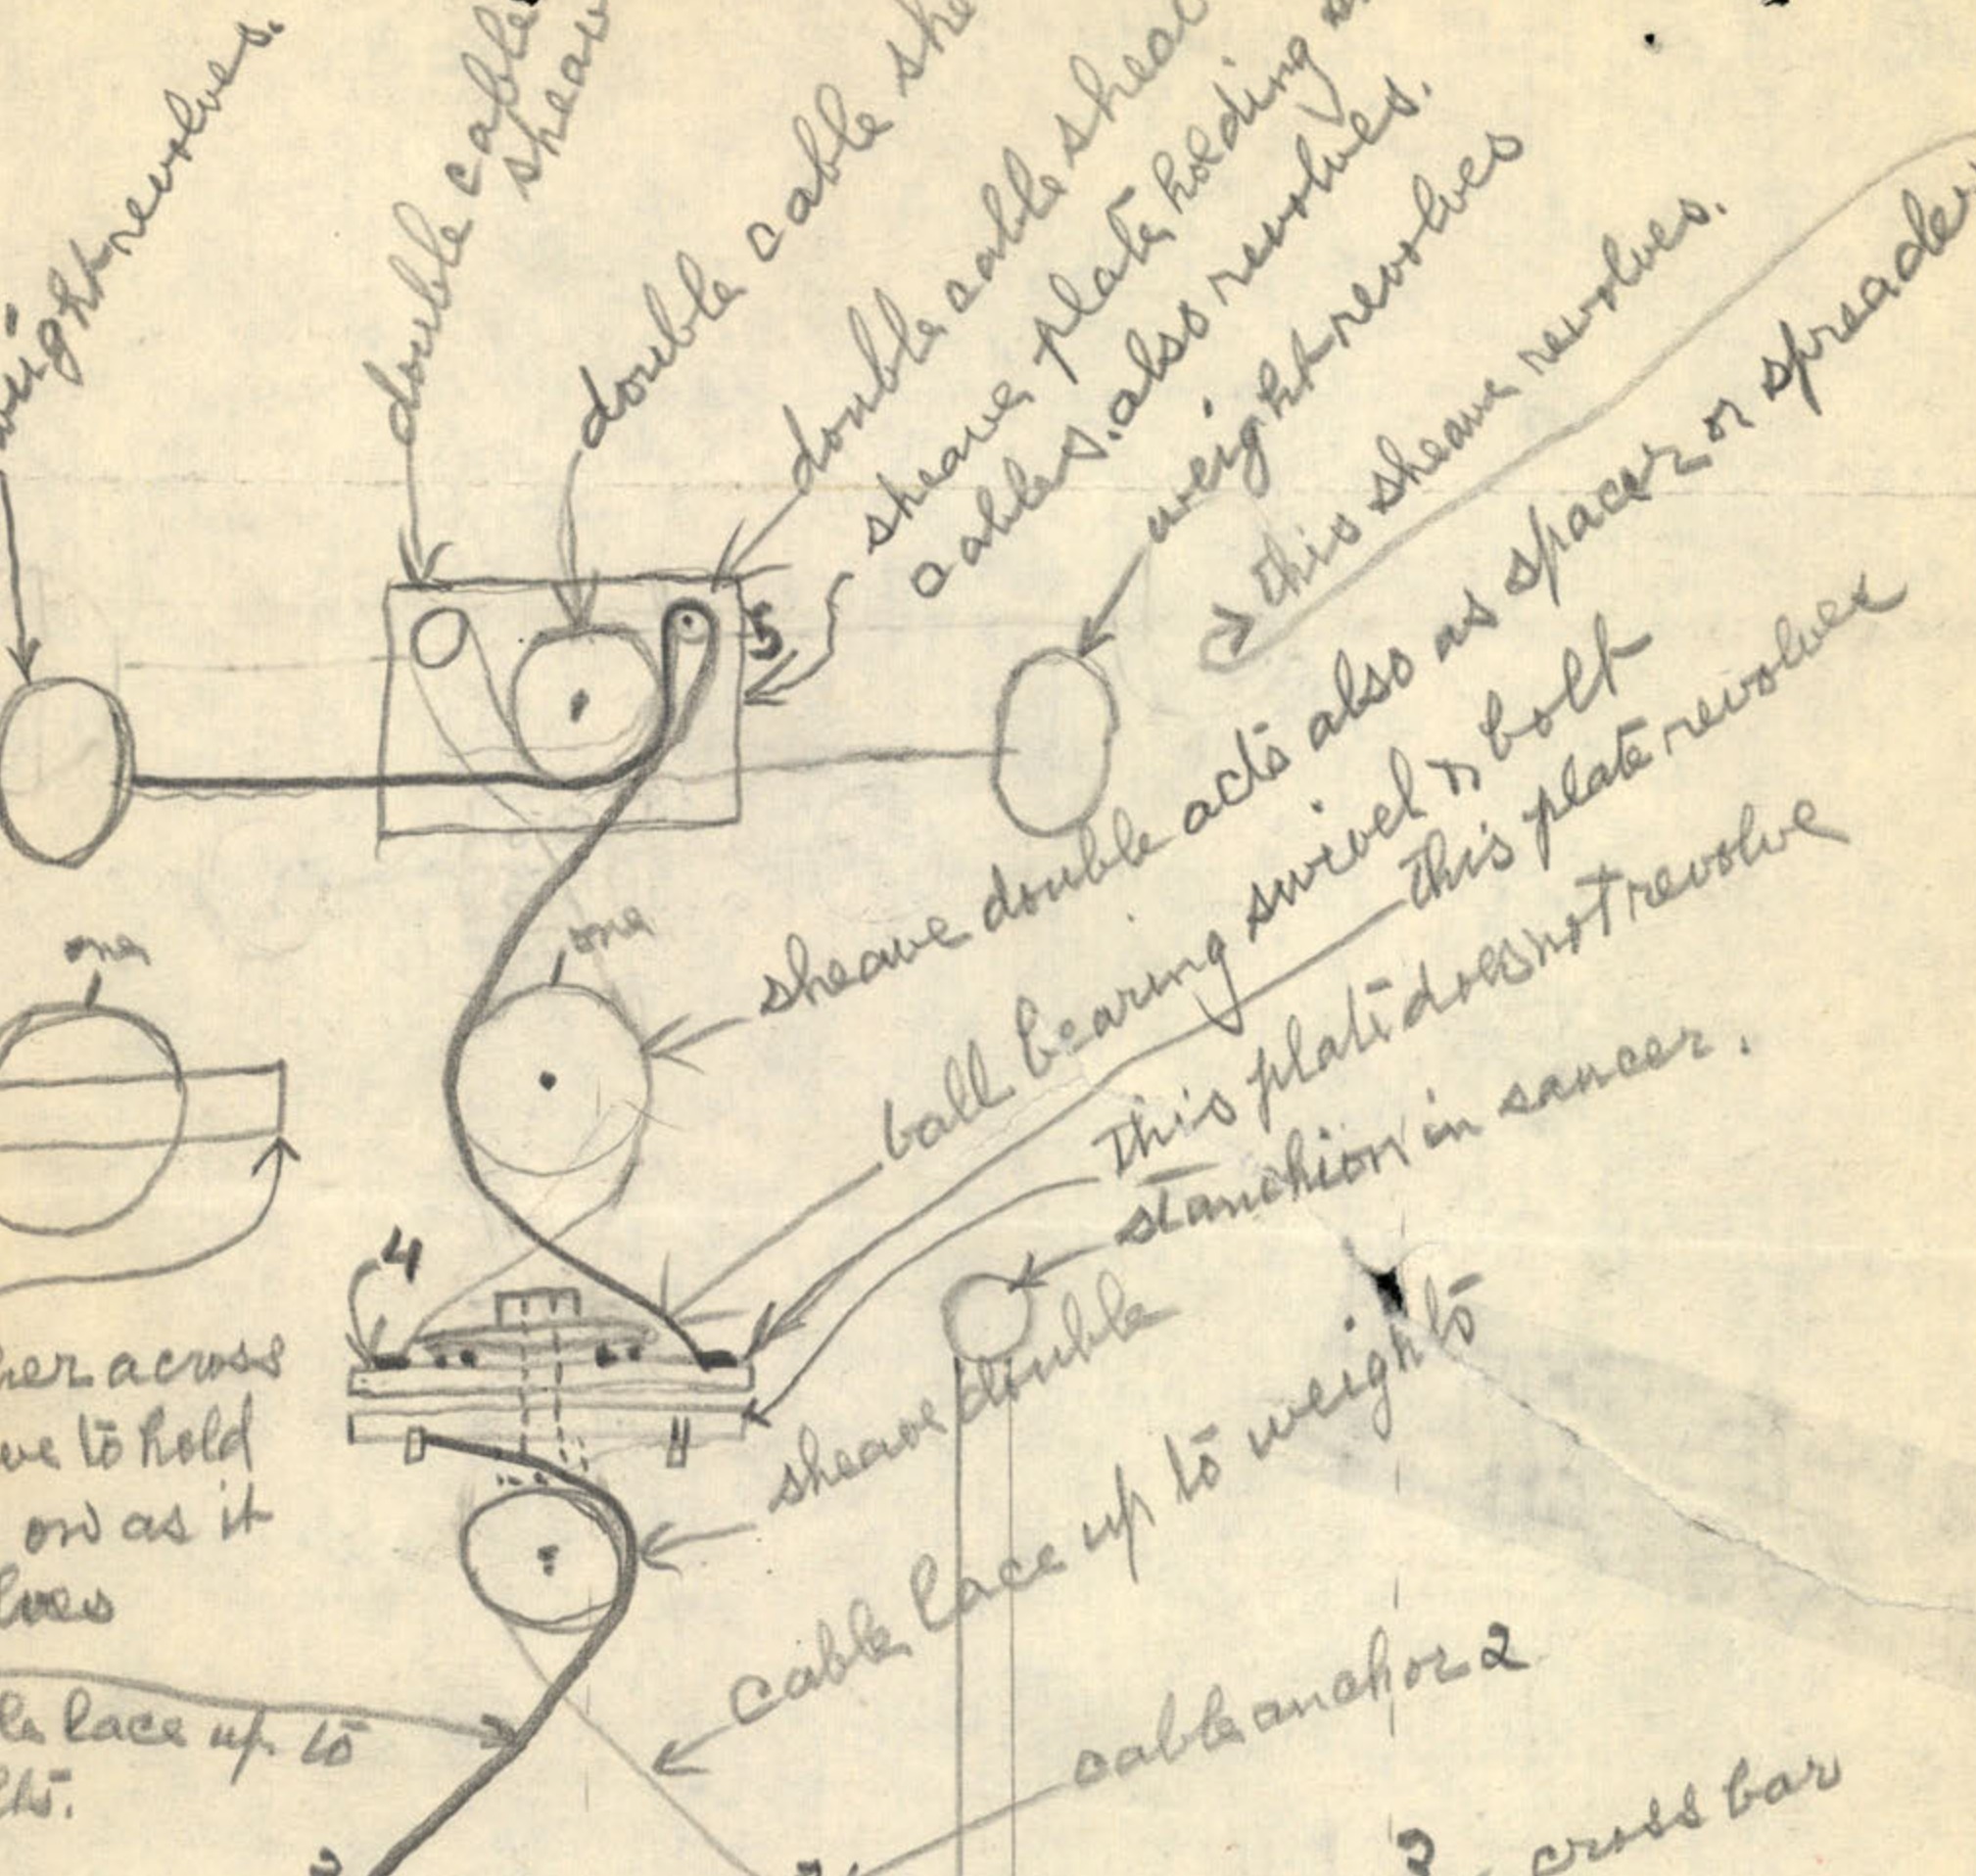 weight revolves.
double cable
sheav
double cable she
double cable sheav
sheave plate holding
cables. also revolves.
weight revolves
this sheave revolves.
5
sheave double acts also as spacer or spreader
ball bearing swivel or bolt
this plate revolves
this plate does not revolve
stanchion in saucer.
one
one
4
her across
ve to hold
on as it
lves
sheave double
cable lace up to weights
le lace up to
hts.
cable anchor 2
cross bar